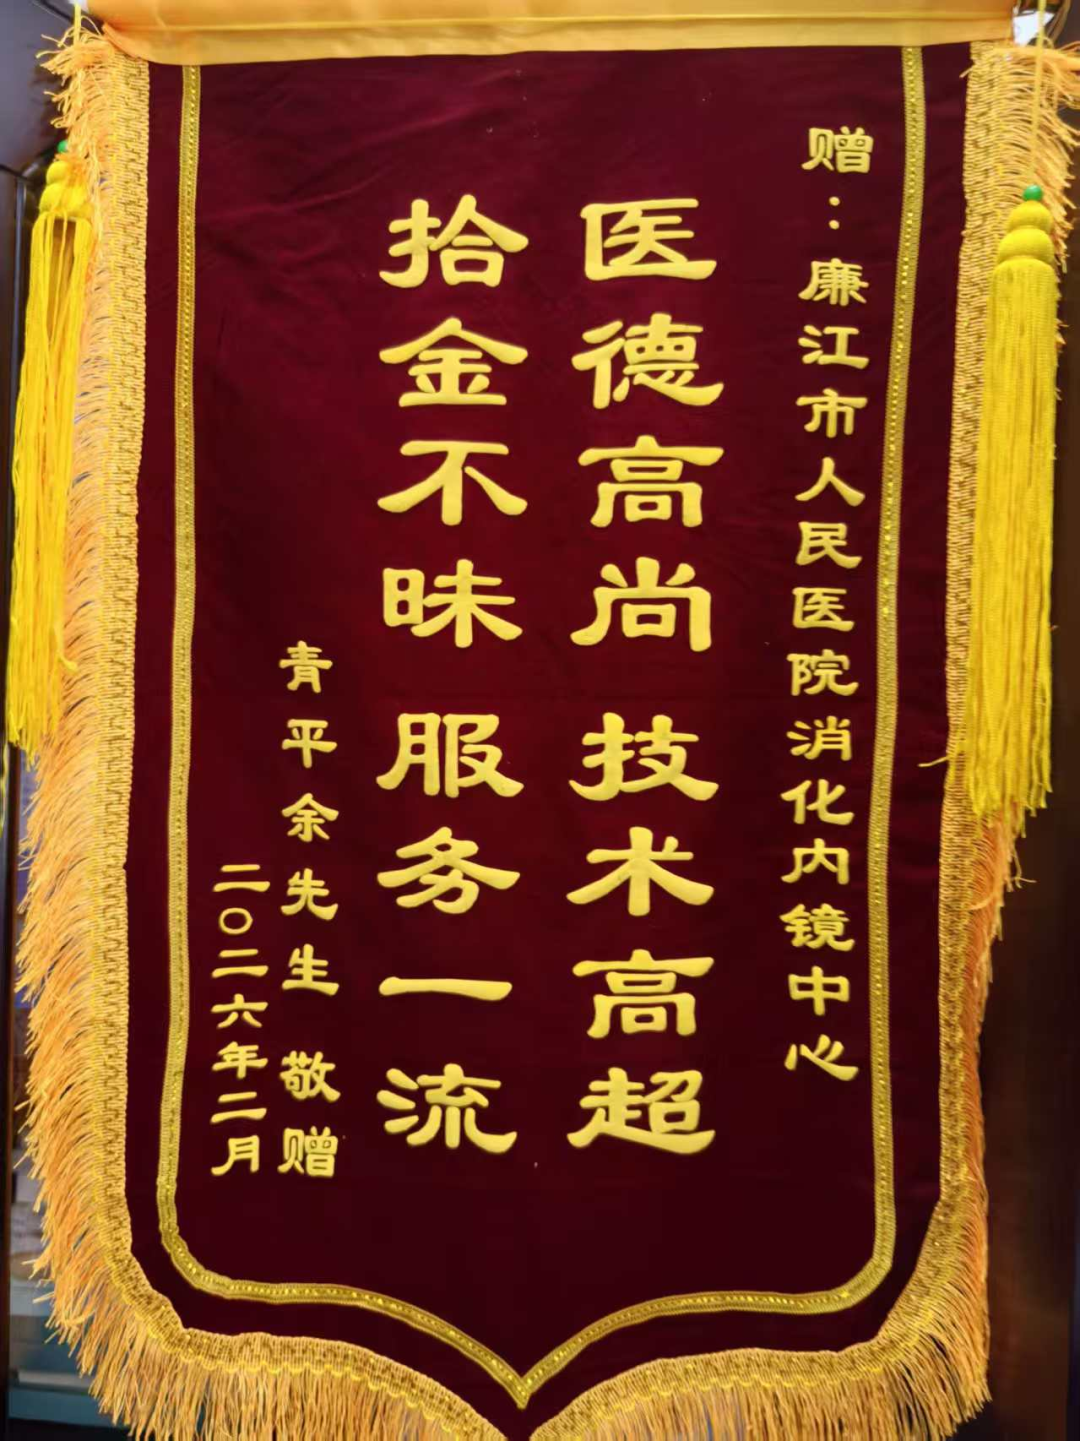 赠：廉江市人民医院消化内镜中心
医德高尚 技术高超
拾金不昧 服务一流
青平余先生 敬赠
二〇二六年二月